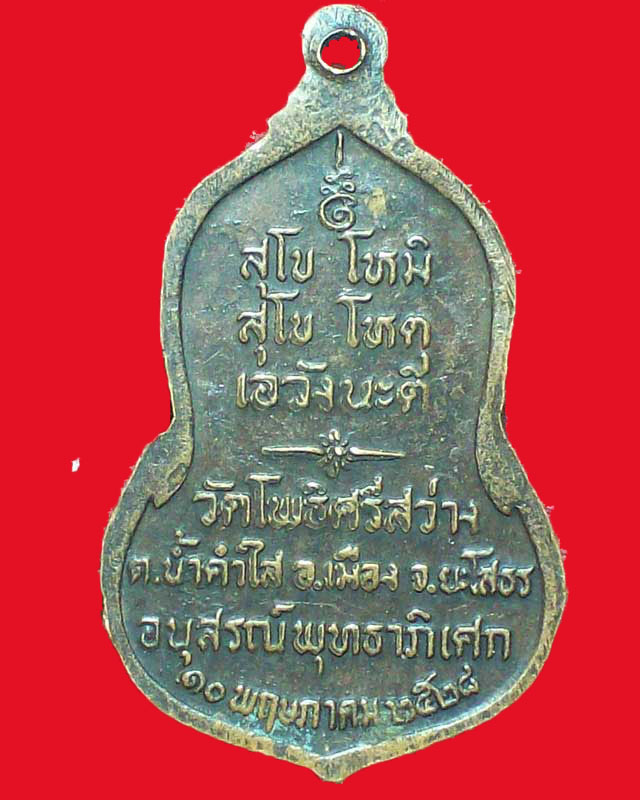 สุโข โหมิ
สุโข โหตุ
เอวังนะตี
วัดโพธิศรีสว่าง
ต.น้ำคำใส อ.เมือง จ.ยะโสธร
อนุสรณ์พุทธาภิเศก
๑๐ พฤษภาคม ๒๕๒๘